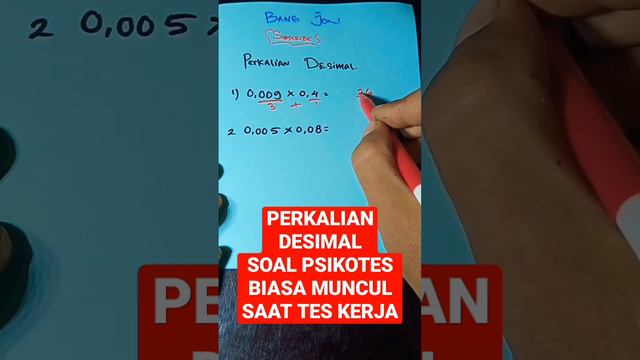 BANG JONI
SUBSCRIBE
PERKALIAN DESIMAL.
1) 0,009 x 0,4 = 36
3 + 1
2 0,005 x 0,08 =
2 0,005 x
PERKALIAN
DESIMAL
SOAL PSIKOTES
BIASA MUNCUL
SAAT TES KERJA